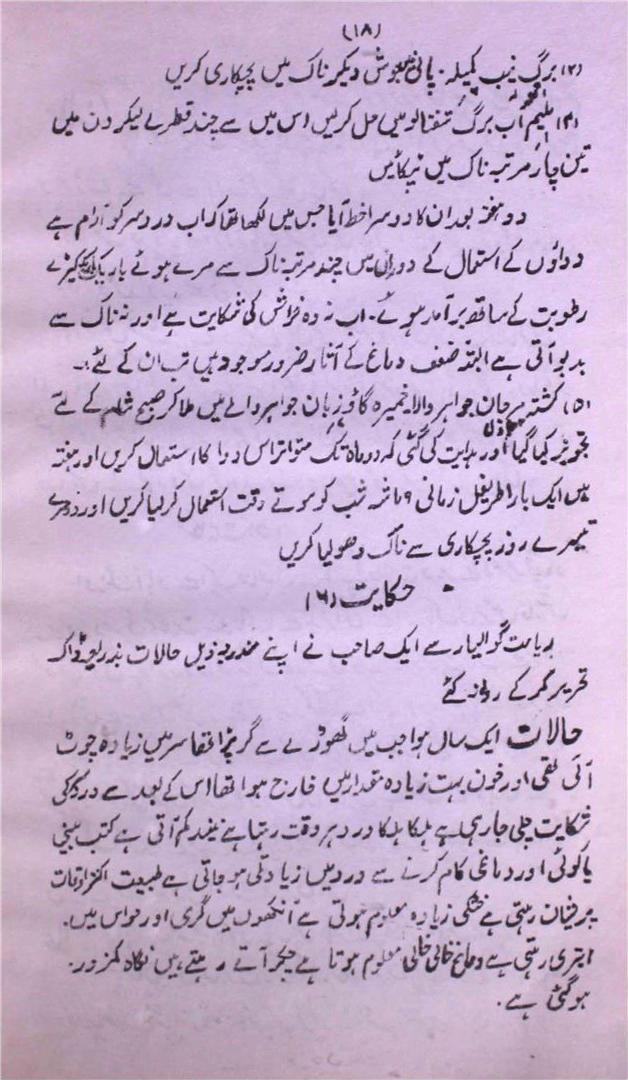 (۱۸)
(۲) برگ نیب کمیلہ۔ پانی میں جوش دیکر ناک میں پچکاری کریں
(۳) آب برگ شفتالو میں حل کریں اس میں سے چند قطرے لیکر دن میں
تین چار مرتبہ ناک میں ٹپکائیں
دو ہفتہ بعد ان کا دوسرا خط آیا جس میں لکھا تھا کہ اب درد سر کو آرام ہے
دواؤں کے استعمال کے دوران میں چند مرتبہ ناک سے مرے ہوئے باریک کیڑے
رطوبت کے ساتھ برآمد ہوئے۔ اب نہ وہ خراش کی شکایت ہے اور نہ ناک سے
بدبو آتی ہے البتہ ضعف دماغ کے آثار ضرور موجود ہیں تب ان کے لئے۔
(۵) کشتہ مرجان جواہر والا خمیرہ گاؤزبان جواہر والے میں ملا کر صبح شام کے لئے
تجویز کیا گیا اور ہدایت کی گئی کہ دو ماہ تک متواتر اس دوا کا استعمال کریں اور ہفتہ
میں ایک بار اطریفل زمانی ۹ ماشہ شب کو سوتے وقت استعمال کر لیا کریں اور دوسرے
تیسرے روز پچکاری سے ناک دھولیا کریں
حکایت (۶)
ریاست گوالیار سے ایک صاحب نے اپنے مندرجہ ذیل حالات بذریعہ ڈاک
تحریر کر کے روانہ کئے
حالات ایک سال ہوا جب میں گھوڑے سے گر پڑا تھا سر میں زیادہ چوٹ
آئی تھی اور خون بہت زیادہ مقدار میں خارج ہوا تھا اس کے بعد سے درد سر کی
شکایت چلی جارہی ہے ہلکا ہلکا درد ہر وقت رہتا ہے نیند کم آتی ہے کتب بینی
یا کوئی اور دماغی کام کرنے سے درد میں زیادتی ہو جاتی ہے طبیعت اکثر اوقات
پریشان رہتی ہے خشکی زیادہ معلوم ہوتی ہے آنکھوں میں گرمی اور حواس میں۔
ابتری رہتی ہے دماغ خالی خالی معلوم ہوتا ہے چکر آتے رہتے ہیں نگاہ کمزور۔
ہو گئی ہے۔